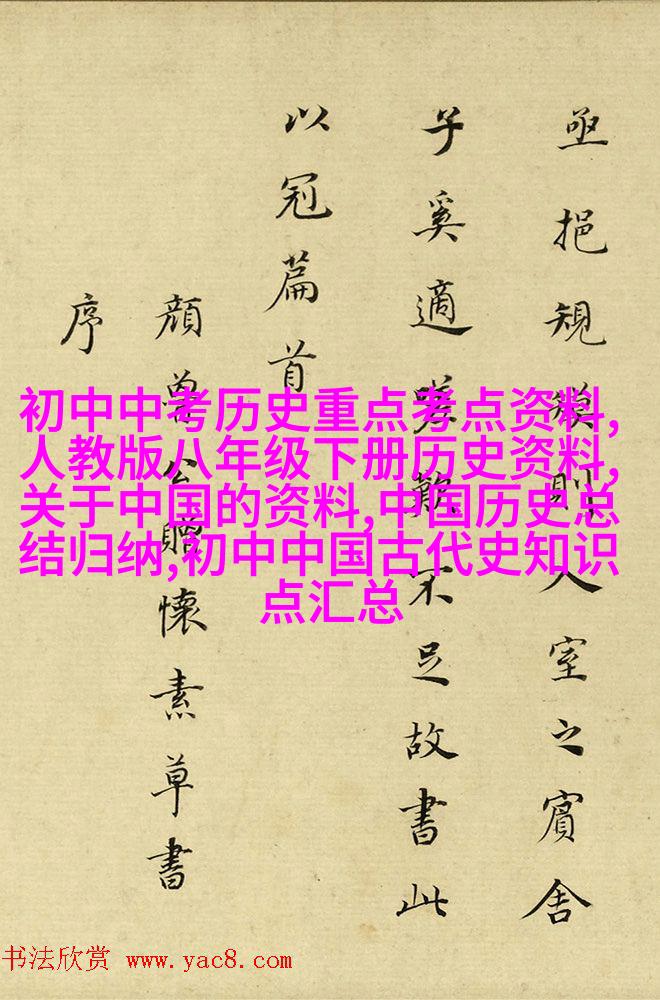 亟挹規模則入室之賓舍
子奚適嗟歎不足故書此
以冠篇首
顔魯公贈懷素草書
序
初中中考历史重点考点资料,
人教版八年级下册历史资料,
关于中国的资料,中国历史总
结归纳,初中中国古代史知识
点汇总
书法欣赏 www.yac8.com